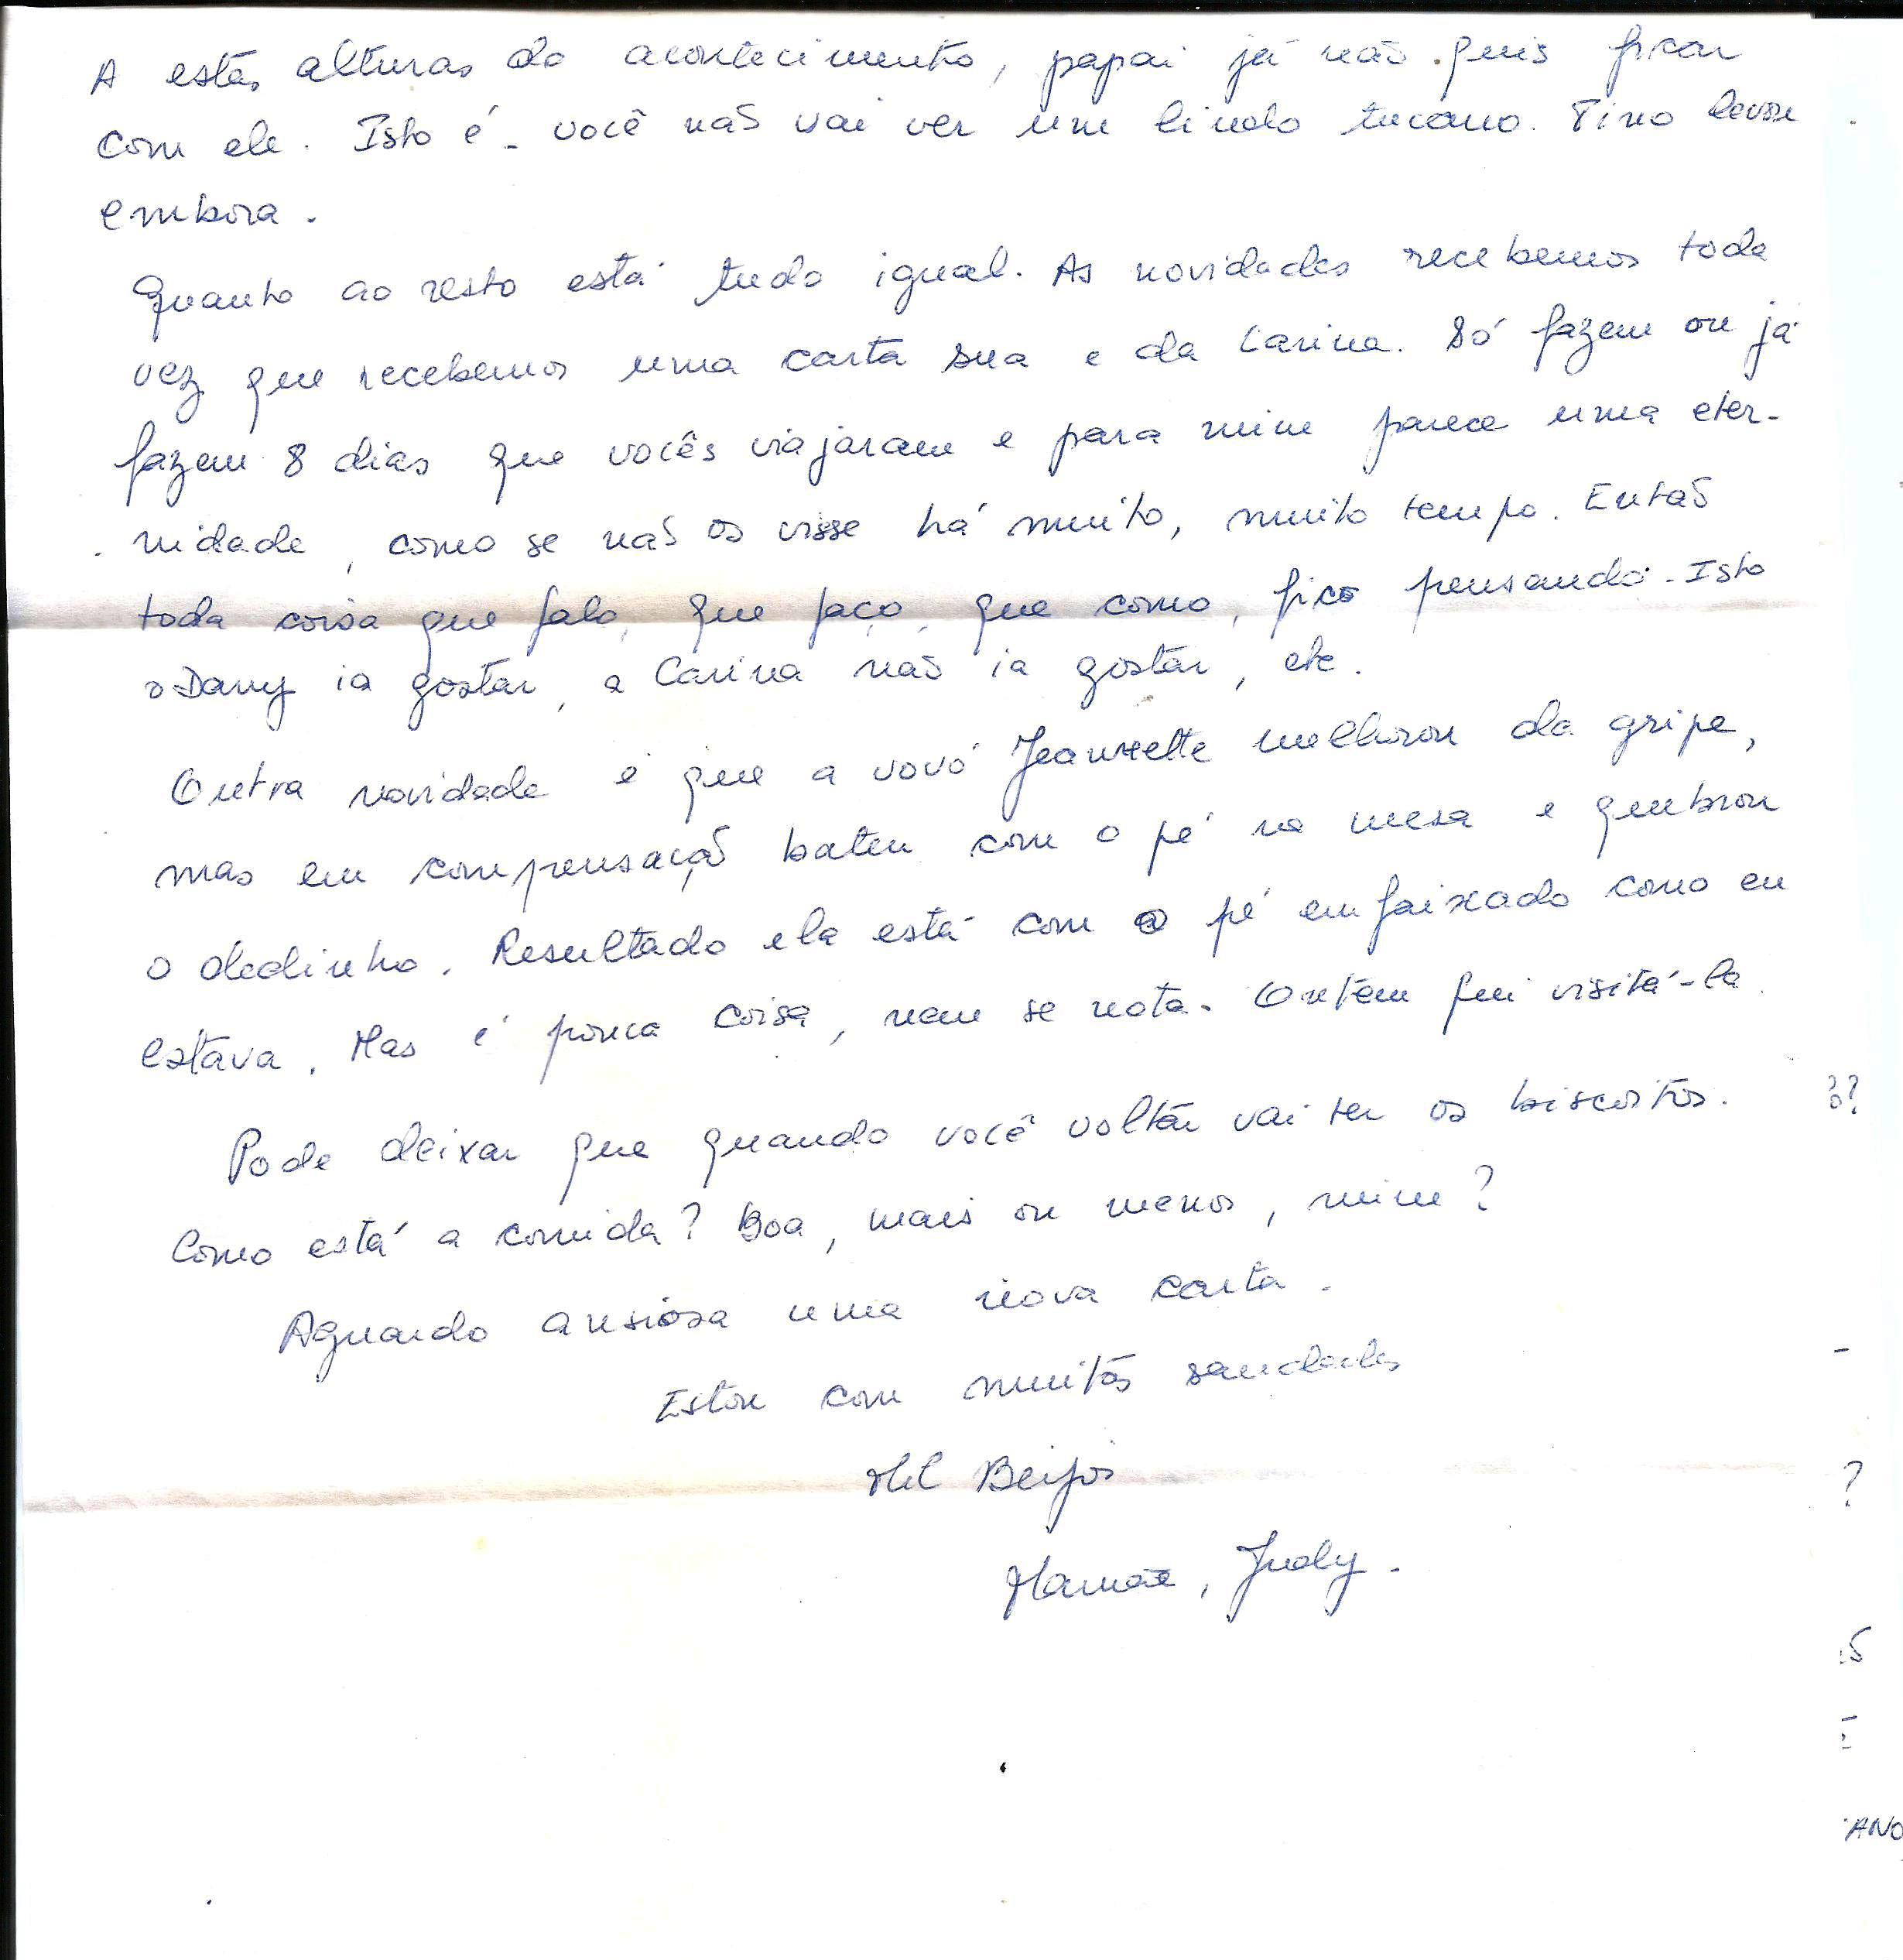 A estas alturas do acontecimento, papai já não quis ficar
com ele. Isto é - você não vai ver um lindo tucano. Tino levou
embora.
Quanto ao resto está tudo igual. As novidades recebemos toda
vez que recebemos uma carta sua e da Carina. Só fazem ou já
fazem 8 dias que vocês viajaram e para mim parece uma eter-
nidade, como se não os visse há muito, muito tempo. Então
toda coisa que falo, que faço, que como, fico pensando. Isto
o Dany ia gostar, a Carina não ia gostar, etc.
Outra novidade é que a vovó Jeannette melhorou da gripe,
mas em compensação bateu com o pé na mesa e quebrou
o dedinho. Resultado ela está com o pé enfaixado como eu
estava. Mas é pouca coisa, nem se nota. Ontem fui visitá-la.
Pode deixar que quando você voltar vai ter os biscoitos.
??
Como está a comida? Boa, mais ou menos, ruim?
Aguardo ansiosa uma nova carta.
Estou com muitas saudades
Mil Beijos
?
Mamãe, Judy.
ANO